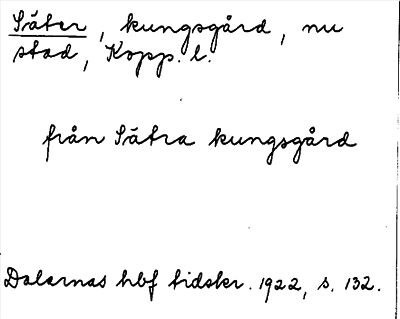 Säter, kungsgård, nu
stad, Kopp. l.
från Sätra kungsgård
Dalarnas hbf tidskr. 1922, s. 132.